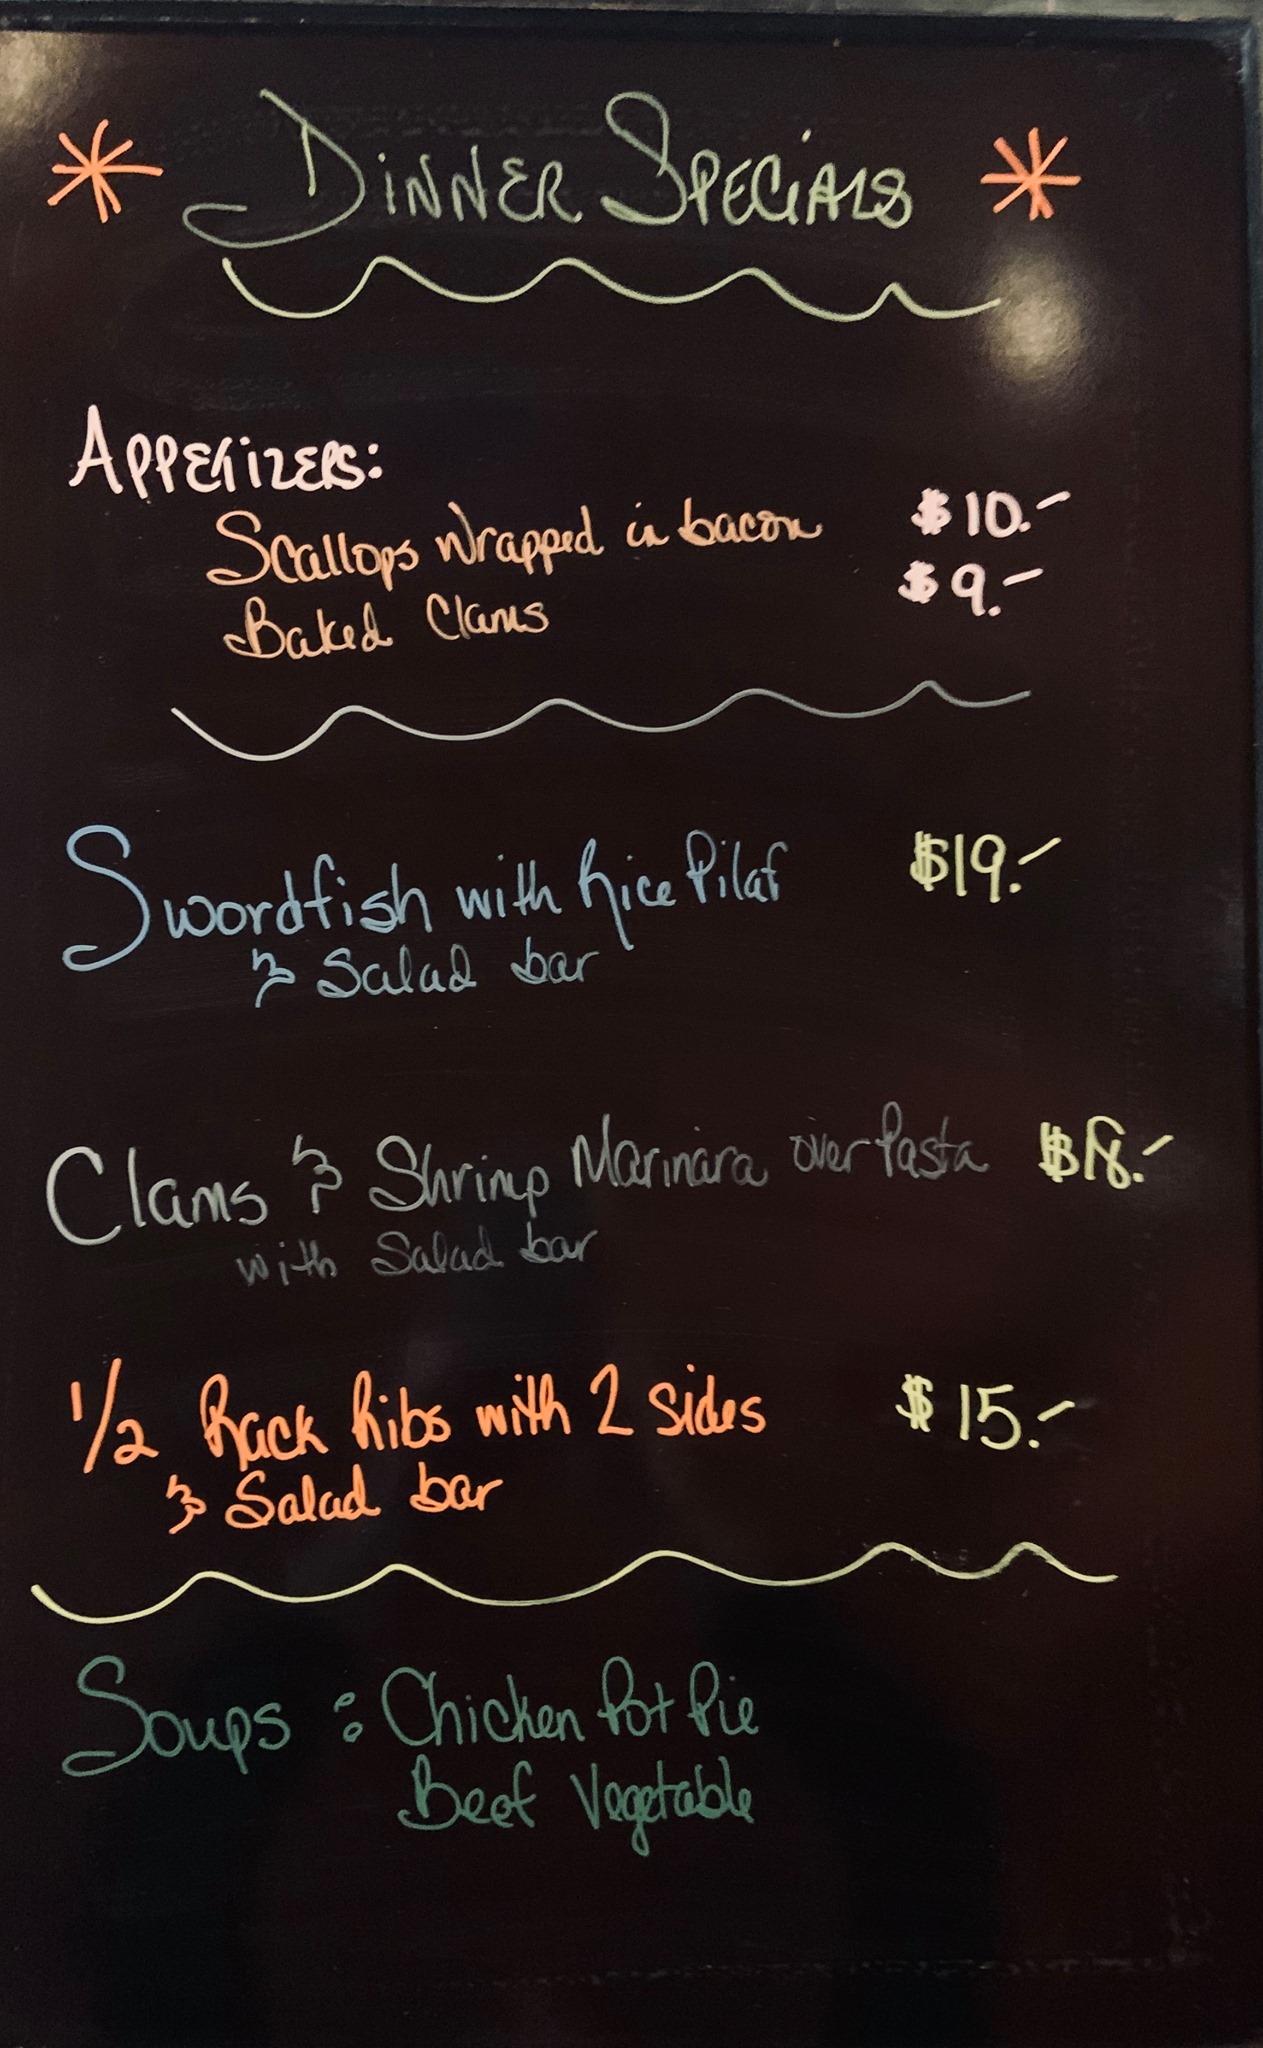 * DINNER SPECIALS *
APPETIZERS:
Scallops wrapped in bacon $10.-
Baked Clams $9.-
Swordfish with Rice Pilaf $19.-
& Salad bar
Clams & Shrimp Marinara over Pasta $18.-
with Salad bar
1/2 Rack Ribs with 2 sides $15.-
& Salad bar
Soups: Chicken Pot Pie
Beef Vegetable